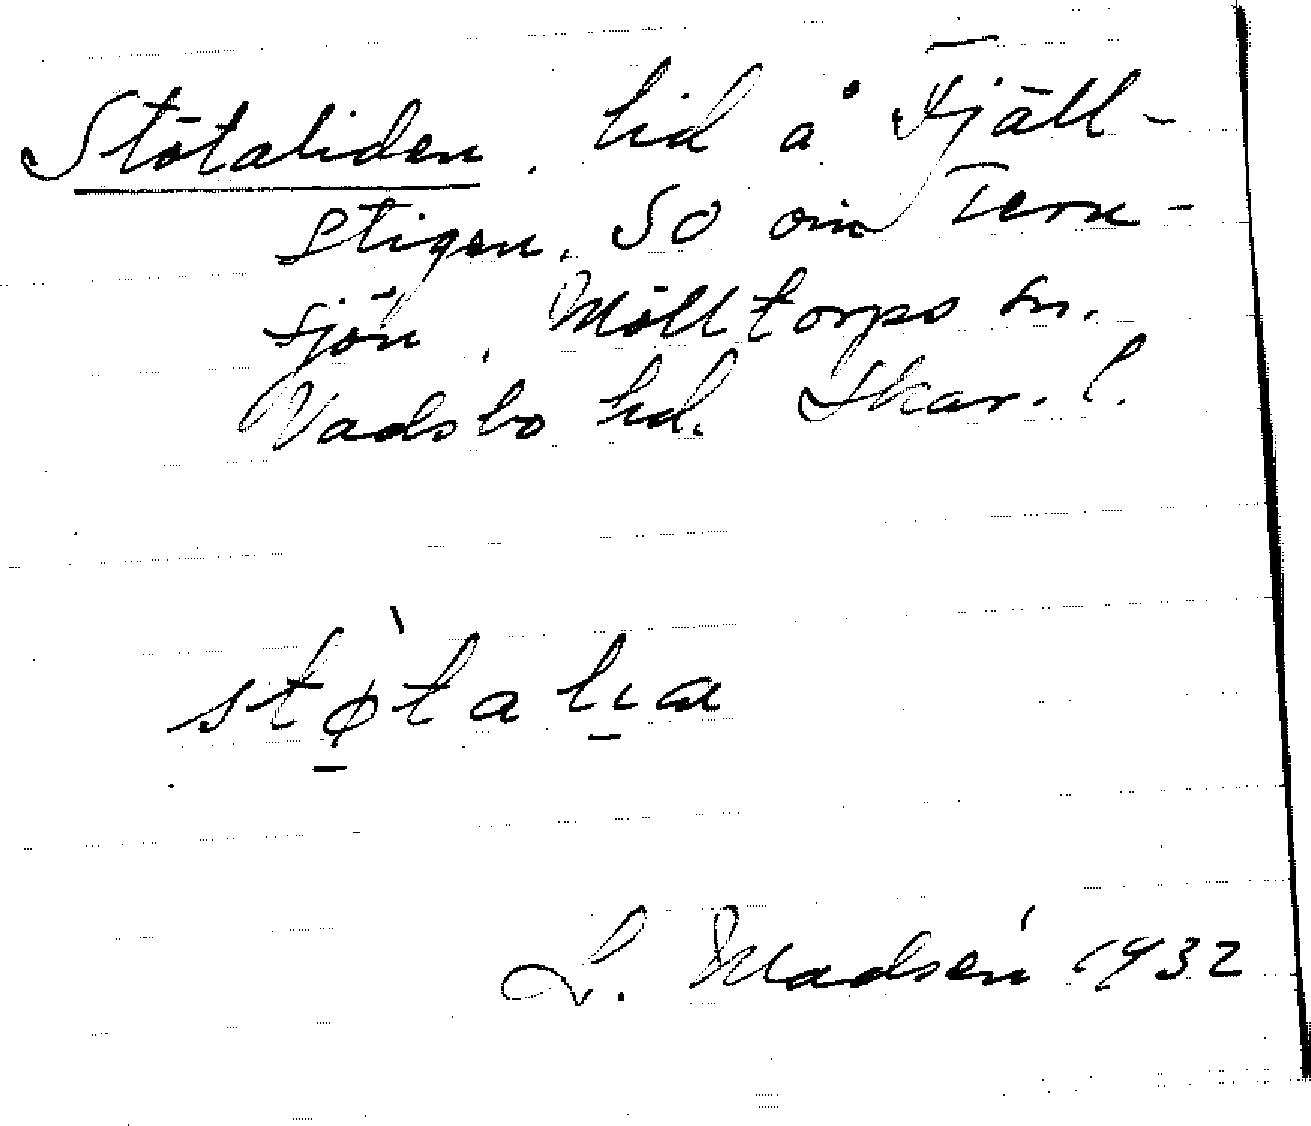 Stötaliden, lid å Fjäll-
stigen. SO om Tern-
sjön, Mölltorps sn.
Vadsbo hd. Skar. l.
stø̱̀tali̱a
L. Madsén 1932